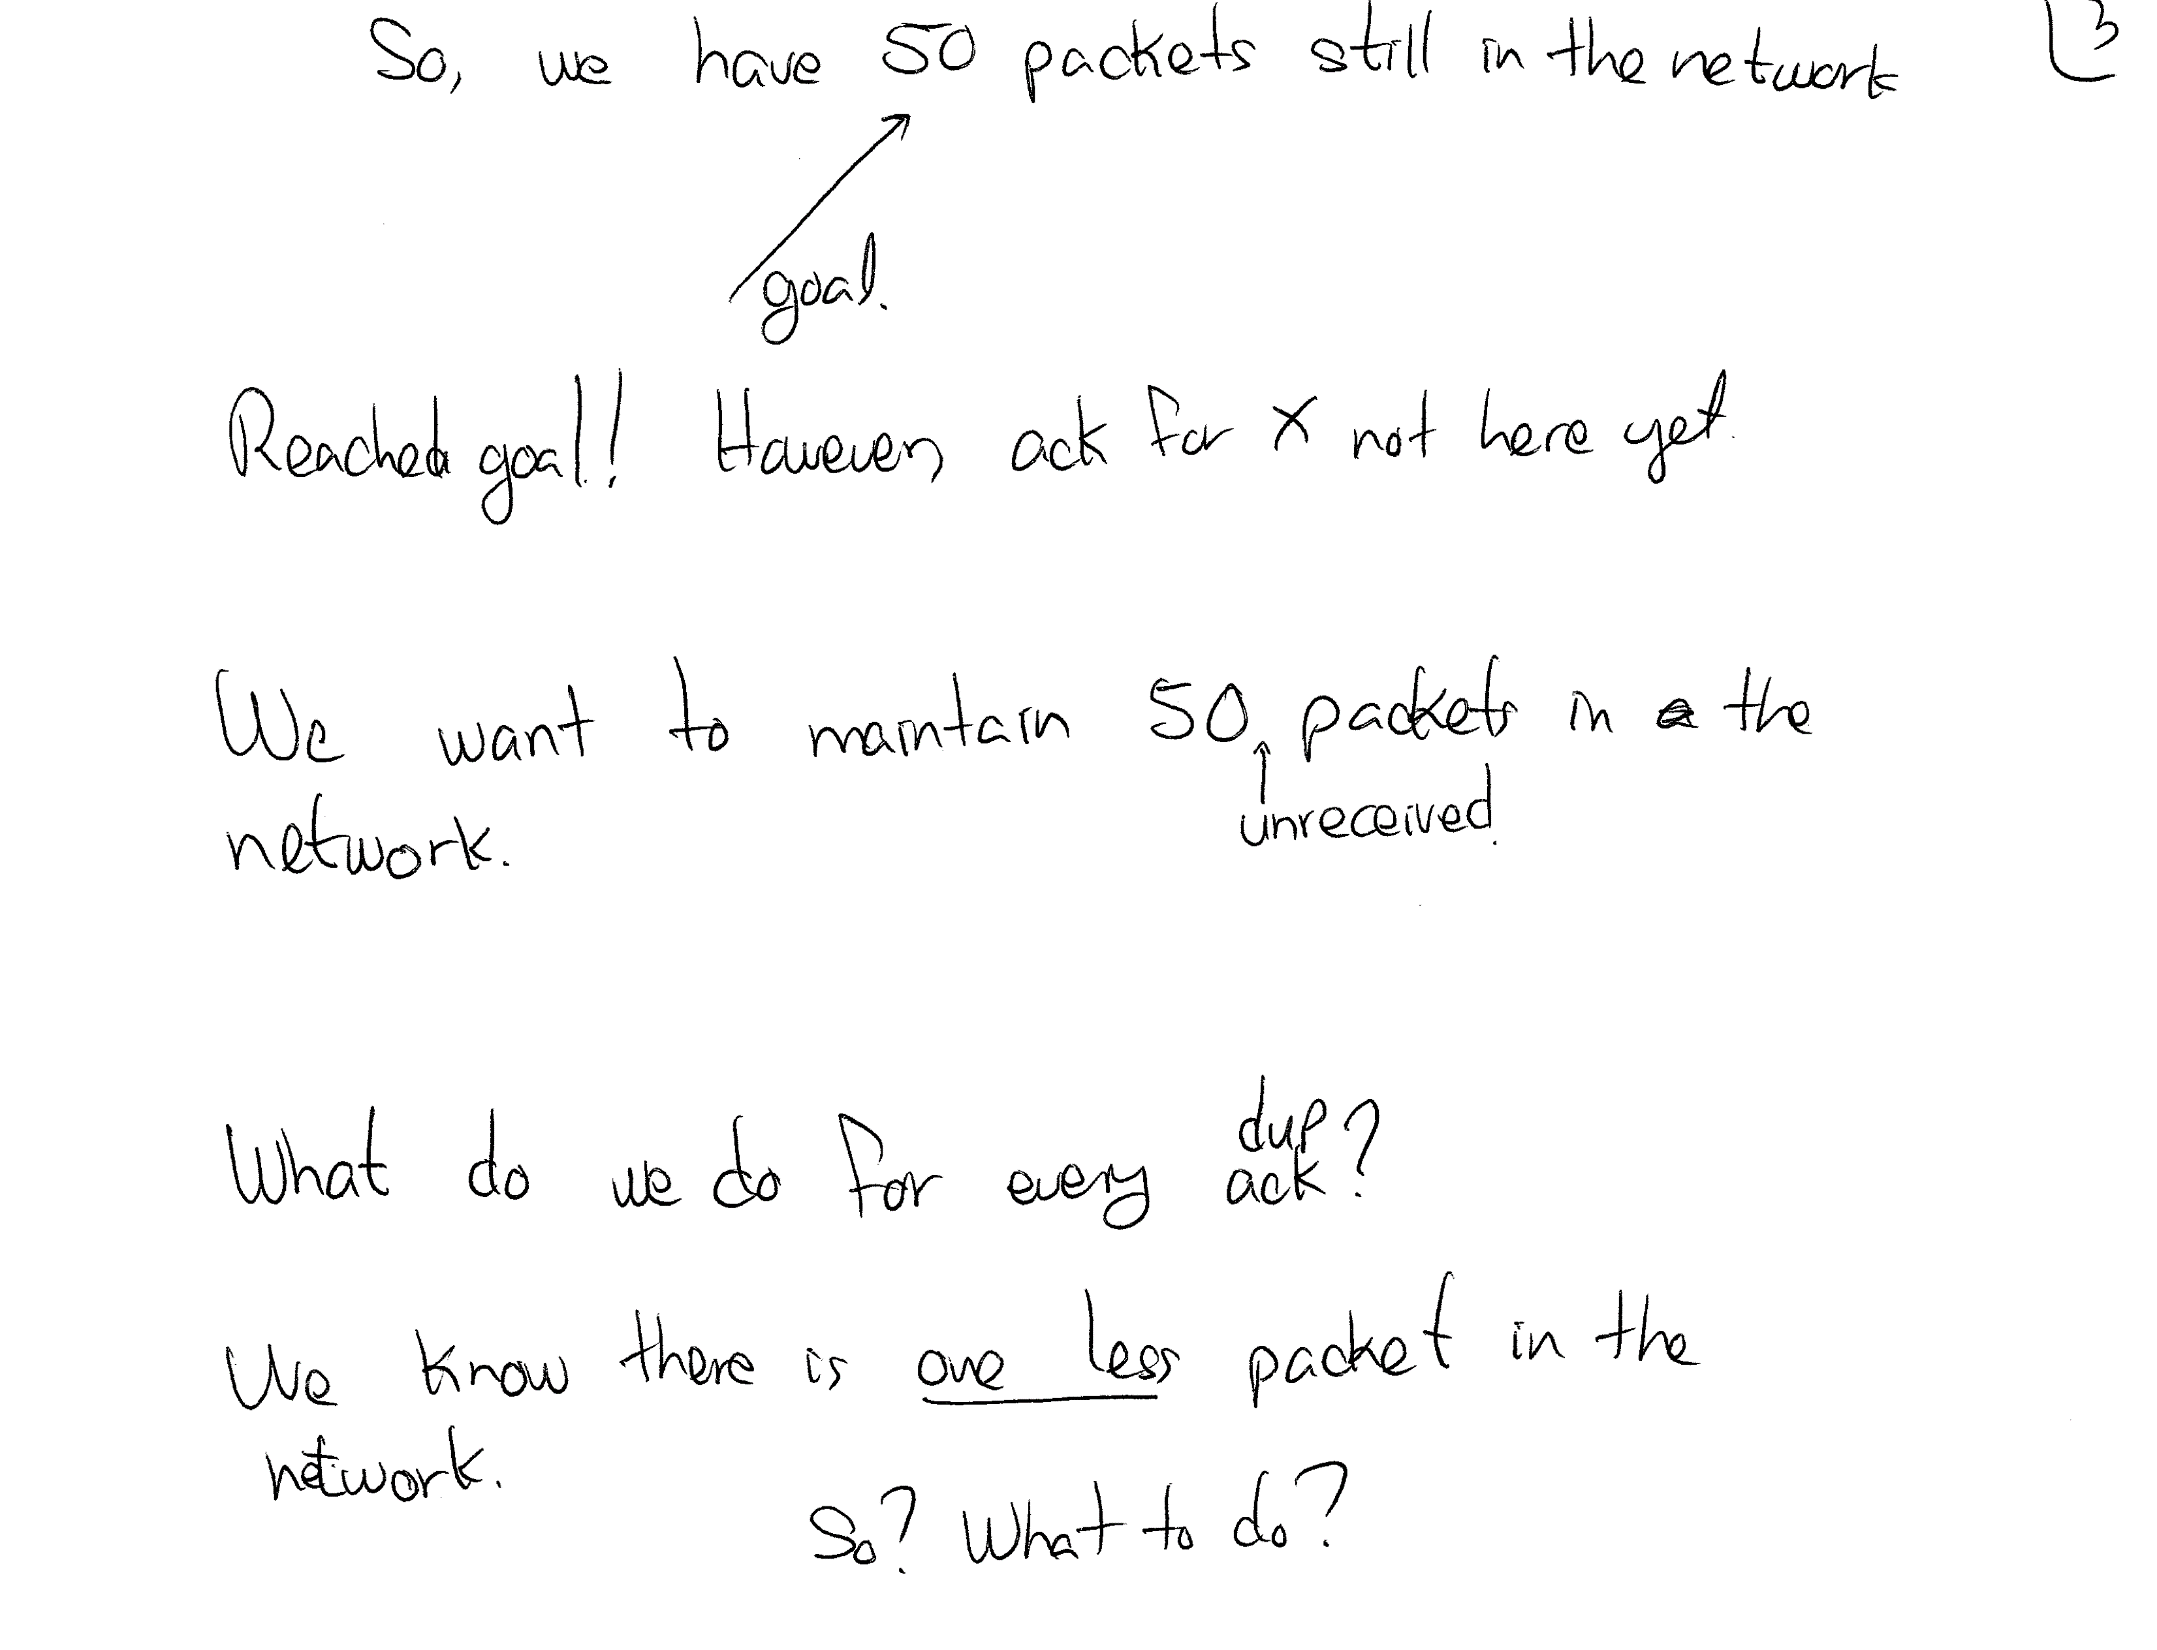 So, we have 50 packets still in the network
3
goal.
Reached goal! However, ack for x not here yet.
We want to maintain 50 packets in the
unreceived.
network.
What do we do for every dup ack?
We know there is one less packet in the
network.
So? What to do?